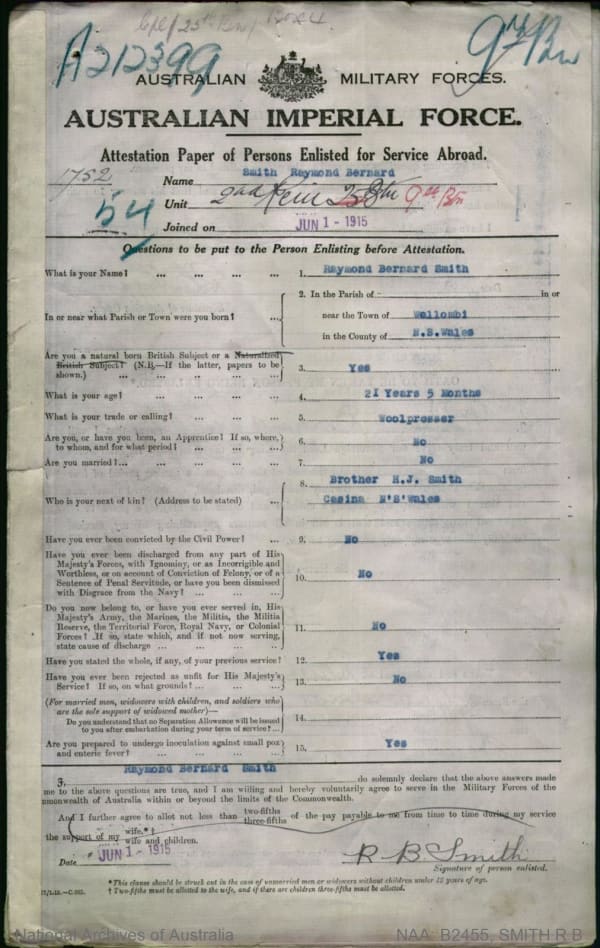 Cpl 25th Bn Box 4
A212399
9th Bn
AUSTRALIAN MILITARY FORCES.
AUSTRALIAN IMPERIAL FORCE.
Attestation Paper of Persons Enlisted for Service Abroad.
1752
Name Smith Raymond Bernard
54
Unit 2nd Rein 25 Btn 9th Bn
Joined on JUN 1 - 1915
Questions to be put to the Person Enlisting before Attestation.
What is your Name? ... ... ... ... 1. Raymond Bernard Smith
2. In the Parish of - in or
In or near what Parish or Town were you born? ... near the Town of Wollombi
in the County of N.S.Wales
Are you a natural born British Subject or a Naturalized
British Subject? (N.B.—If the latter, papers to be
shown.) ... ... ... ... ... 3. Yes
What is your age? ... ... ... ... 4. 21 Years 5 Months
What is your trade or calling? ... ... ... 5. Woolpresser
Are you, or have you been, an Apprentice? If so, where,
to whom, and for what period? ... ... ... 6. No
Are you married?... ... ... ... ... 7. No
8. Brother H.J. Smith
Who is your next of kin? (Address to be stated) ... Casina N'S'Wales
Have you ever been convicted by the Civil Power? ... 9. No
Have you ever been discharged from any part of His
Majesty's Forces, with Ignominy, or as Incorrigible and
Worthless, or on account of Conviction of Felony, or of a
Sentence of Penal Servitude, or have you been dismissed
with Disgrace from the Navy? ... ... ... 10. No
Do you now belong to, or have you ever served in, His
Majesty's Army, the Marines, the Militia, the Militia
Reserve, the Territorial Force, Royal Navy, or Colonial
Forces? If so, state which, and if not now serving,
state cause of discharge ... ... ... ... 11. No
Have you stated the whole, if any, of your previous service? 12. Yes
Have you ever been rejected as unfit for His Majesty's
Service? If so, on what grounds? ... ... ... 13. No
(For married men, widowers with children, and soldiers who
are the sole support of widowed mother)—
Do you understand that no Separation Allowance will be issued
to you after embarkation during your term of service?... 14.
Are you prepared to undergo inoculation against small pox
and enteric fever? ... ... ... ... 15. Yes
I, Raymond Bernard Smith do solemnly declare that the above answers made
me to the above questions are true, and I am willing and hereby voluntarily agree to serve in the Military Forces of the
mmonwealth of Australia within or beyond the limits of the Commonwealth.
And I further agree to allot not less than two-fifths three-fifths of the pay payable to me from time to time during my service
the support of my wife.*† wife and children.
Date JUN 1 - 1915
R B Smith
Signature of person enlisted.
*This clause should be struck out in the case of unmarried men or widowers without children under 18 years of age.
† Two-fifths must be allotted to the wife, and if there are children three-fifths must be allotted.
National Archives of Australia
NAA: B2455, SMITH R B